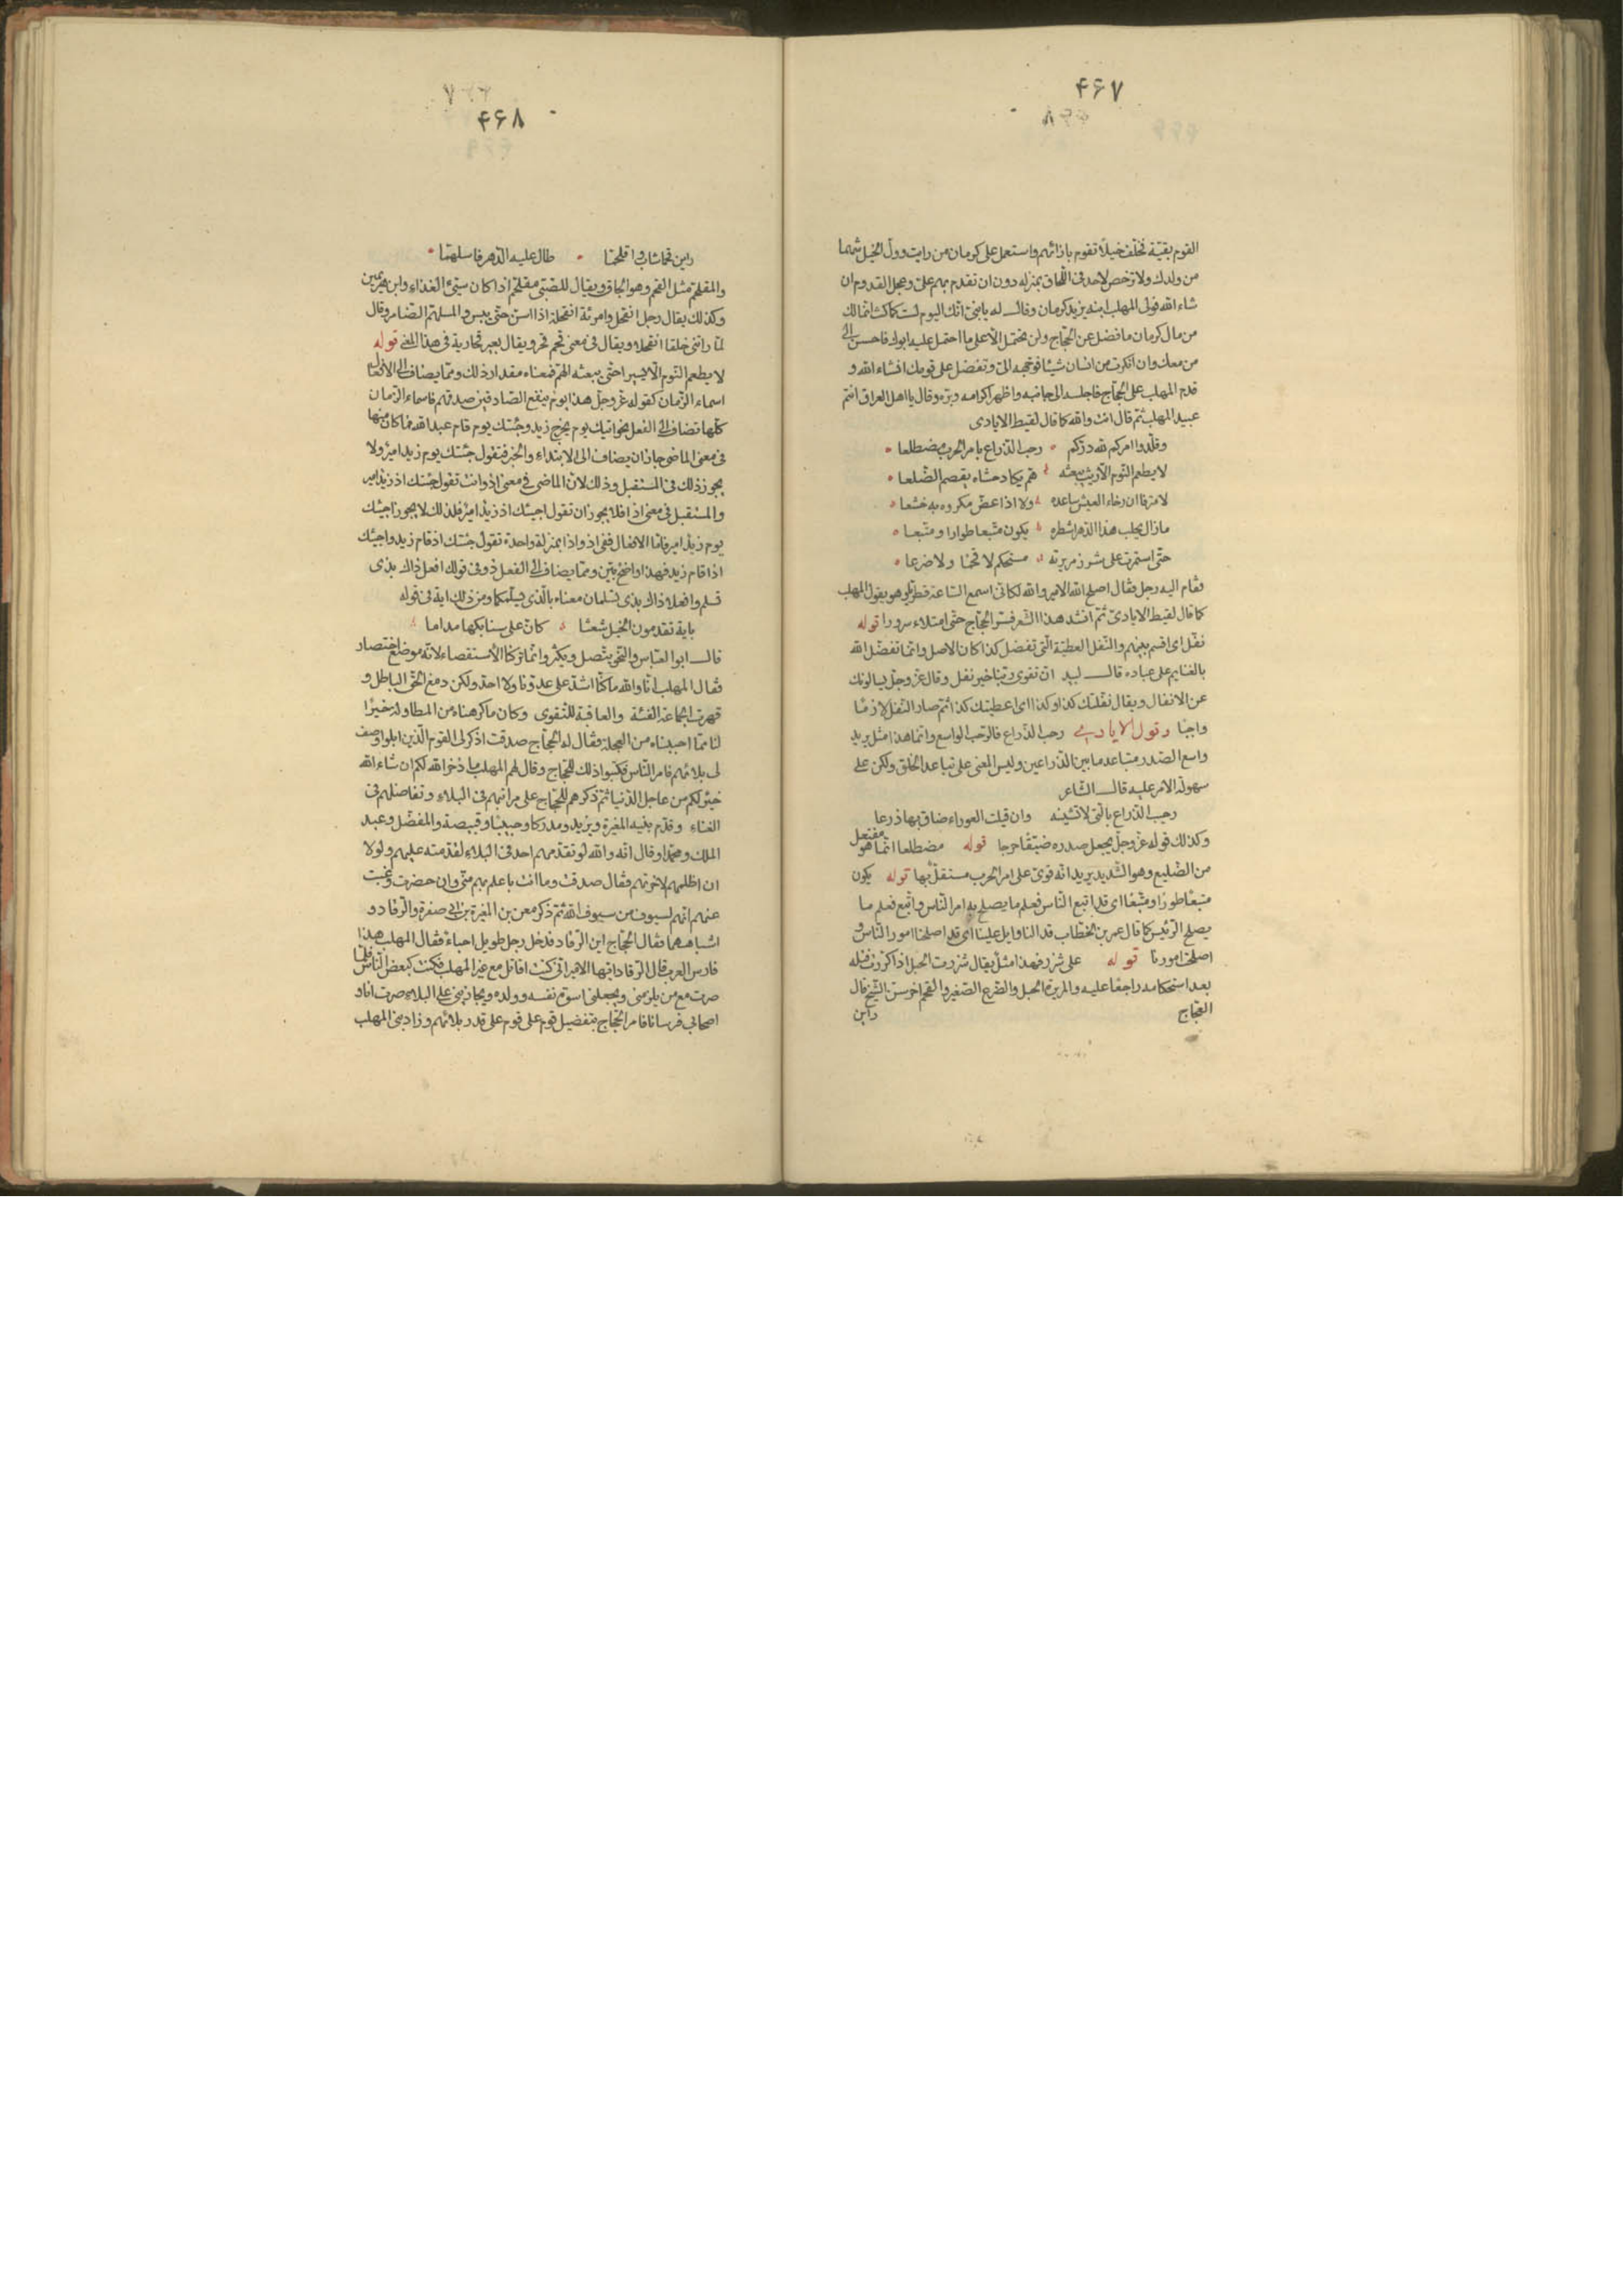 ۴۶۷
القوم بقيّة فخلّف خيلا تقوم بازائهم واستعمل على كرمان من رايت وولّ الخيل شهما
من ولدك ولا ترخص لاحد فى اللّحاق بمنزله دون ان تقدم بهم علىّ وعجل القدوم ان
شاء الله فولى المهلب ابنه يزيد كرمان وقال له يا بنىّ انّك اليوم لست كما كنت انّما لك
من مال كرمان ما فضل عن الحجّاج ولن تحتمل الّا على ما احتمل عليه ابوك فاحسن الى
من معك وان انكرت من انسان شيئا فوجّهه الىّ وتفضل على قومك انشاء الله و
قدم المهلب على الحجّاج فاجلسه الى جانبه واظهر اكرامه وبرّه وقال يا اهل العراق انتم
عبيد المهلب ثمّ قال انت والله كما قال لقيط الايادى
وقلّدوا امركم لله درّكم رحب الذّراع بامر الحرب مضطلعا
لا يطعم النّوم الّا ريث يبعثه همّ يكاد حشاه يقصم الضّلعا
لا مترفا ان رخاء العيش ساعده ولا اذا عضّ مكروه به خشعا
ما زال يحلب هذا الدّهر اشطره يكون متّبعا طورا ومتّبعا
حتّى استمرّت على شزر مريرته مستحكم لا قحما ولا ضرعا
فقام اليه رجل فقال اصلح الله الامير والله لكانّى اسمع السّاعة قطريّا وهو يقول المهلب
كما قال لقيط الايادىّ ثمّ انشد هذا الشّعر فسرّ الحجّاج حتّى امتلاء سرورا قوله
نفّل اى اقسم بينهم والنّفل العطيّة الّتى تفضل كذا كان الاصل وانّما تفضّل الله
بالغنايم على عباده قال لبيد انّ تقوى ربّنا خير نفل وقال عزّ وجلّ يسالونك
عن الانفال ويقال نفّلتك كذا وكذا اى اعطيتك كذا ثمّ صار النّفل لازمًا
واجبًا وقول الايادى رحب الذّراع فالرّحب الواسع وانّما هذا مثل يريد
واسع الصّدر متباعد ما بين الذّراعين وليس المعنى على تباعد الخلق ولكن على
سهولة الامر عليه قال الشّاعر
رحيب الذّراع بالّتى لا تشينه وان قيلت العوراء ضاق بها ذرعا
وكذلك قوله عزّ وجلّ يجعل صدره ضيّقًا حرجا قوله مضطلعا انّما هو مفتعل
من الضّليع وهو الشّديد يريد انّه قوىّ على امر الحرب مستقلّ بها قوله يكون
متّبعًا طورًا ومتّبعًا اى قد اتبع النّاس فعلم ما يصلح به امر النّاس واتبع فعلم ما
يصلح الرّئيس كما قال عمر بن الخطّاب قد النا وايل علينا اى قد اصلحنا امور النّاس و
اصلحت امورنا قوله على شزر فهذا مثل يقال شزرت الحبل اذا كرّرت فتله
بعد استحكامه راجعًا عليه والمريرة الحبل والضّرع الصّغير والقحم اخر سن الشّيخ قال
العجّاج راين
۴۶۸
راين قحما شاب واقلحمّا طال عليه الدّهر فاسلهمّا
والمقلحمّ مثل القحم وهو الجافّ ويقال للصّبىّ مقلحمّ اذا كان سيّئ الغذاء وابن هرمين
وكذلك يقال رجل انقحل وامرئة انقحلة اذا اسن حتّى ييبس والمسلهمّ الضّامر وقال
لمّا راتنى خلقا انقحلا ويقال فى معنى قحم قحر ويقال بعير قحارية فى هذا المعنى قوله
لا يطعم النّوم الّا يسيرا حتّى يبعثه الهمّ فمعناه مقدار ذلك وممّا يضاف الى الافعال
اسماء الزّمان كقوله عزّ وجلّ هذا يوم ينفع الصّادقين صدقهم فاسماء الزّمان
كلّها تضاف الى الفعل نحو اتيك يوم يخرج زيد وجئتك يوم قام عبد الله فما كان منها
فى معنى الماضى جاز ان يضاف الى الابتداء والخبر فتقول جئتك يوم زيد امير ولا
يجوز ذلك فى المستقبل وذلك لانّ الماضى فى معنى اذ وانت تقول جئتك اذ زيد امير
والمستقبل فى معنى اذا فلا يجوز ان تقول اجيئك اذ زيد امير فلذلك لا يجوز اجيئك
يوم زيد امير فامّا الافعال ففى اذ واذا بمنزلة واحدة تقول جئتك اذ قام زيد واجيئك
اذا قام زيد فهذا واضح بيّن وممّا يضاف الى الفعل ذو فى قولك افعل ذاك بذى
تسلم وافعلاه ذاك بذى تسلمان معناه بالّذى يسلّمكما ومن ذلك اية فى قوله
باية تقدمون الخيل شعثا كانّ على سنابكها مداما
قال ابو العبّاس والنّحو يتّصل ويكثر وانّما تركنا الاستقصاء لانّه موضع اختصار
فقال المهلب انّا والله ما كنّا اشدّ على عدوّنا ولا احدّ ولكن دمغ الحقّ الباطل و
قهرت الجماعة الفتنة والعاقبة للتّقوى وكان ما كرهناه من المطاولة خيرًا
لنا ممّا احببناه من العجلة فقال له الحجّاج صدقت اذكر لى القوم الّذين ابلوا وصف
لى بلائهم فامر النّاس فكتبوا ذلك للحجّاج وقال لهم المهلب ما ذخر الله لكم ان شاء الله
خير لكم من عاجل الدّنيا ثمّ ذكرهم للحجّاج على مراتبهم فى البلاء وتفاضلهم فى
الغناء وقدّم بنيه المغيرة ويزيد ومدركا وحبيبا وقبيصة والمفضّل وعبد
الملك ومحمّدا وقال انّه والله لو تقدّمهم احد فى البلاء لقدّمته عليهم ولولا
ان اظلمهم لاخّرتهم فقال صدقت وما انت باعلم بهم منّى وان حضرت وغبت
عنهم انّهم لسيوف من سيوف الله ثمّ ذكر معن بن المغيرة بن ابى صفرة والرّقاد و
اشباههما فقال الحجّاج اين الرّقاد فدخل رجل طويل اجناء فقال المهلب هذا
فارس العرب فقال الرّقاد ايّها الامير انّى كنت اقاتل مع غير المهلب فكنت كبعض النّاس فلمّا
صرت مع من يلزمنى ويجعلنى اسوة نفسه وولده ويجازينى على البلاء صرت انا و
اصحابى فرسانا فامر الحجّاج بتفضيل قوم على قوم على قدر بلائهم وزاد بنى المهلب